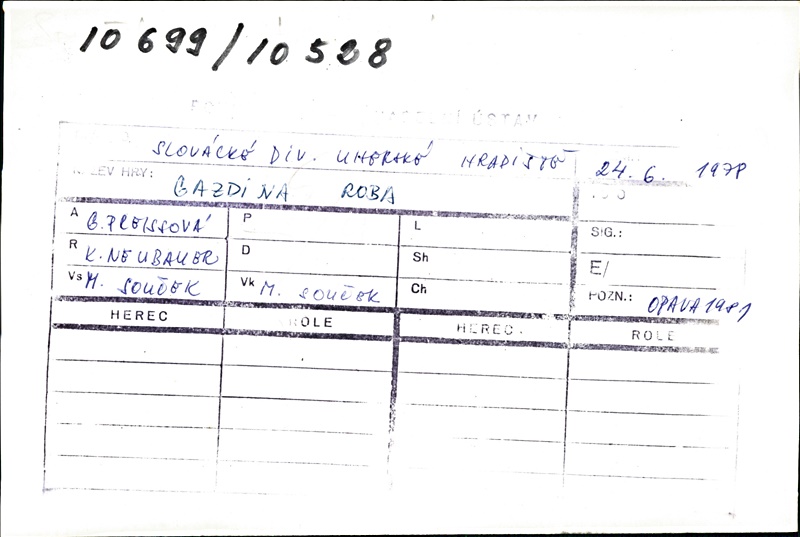 10 699/10 528
SLOVÁCKÉ DIV. UHERSKÉ HRADIŠTĚ 24. 6. 1978
HRY:
GAZDINA ROBA
A G. PREISSOVÁ P L SIG.:
R K. NEUBAUER D Sh E/
Vs M. SOUČEK Vk M. SOUČEK Ch POZN.: OPAVA 1981
HEREC ROLE HEREC ROLE